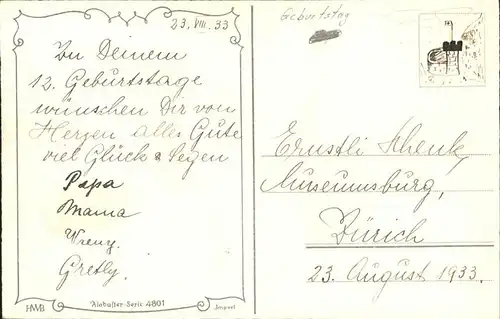 23. VIII. 33
Zu Deinem
13. Geburtstage
wünschen Dir von
Herzen alles Gute
viel Glück & Segen
Papa
Mama
Vreny.
Gretly.
HWB
Alabaster-Serie 4801
Import
Geburtstag
Ernstli Schenk,
Museumsburg,
Zürich
23. August 1933.